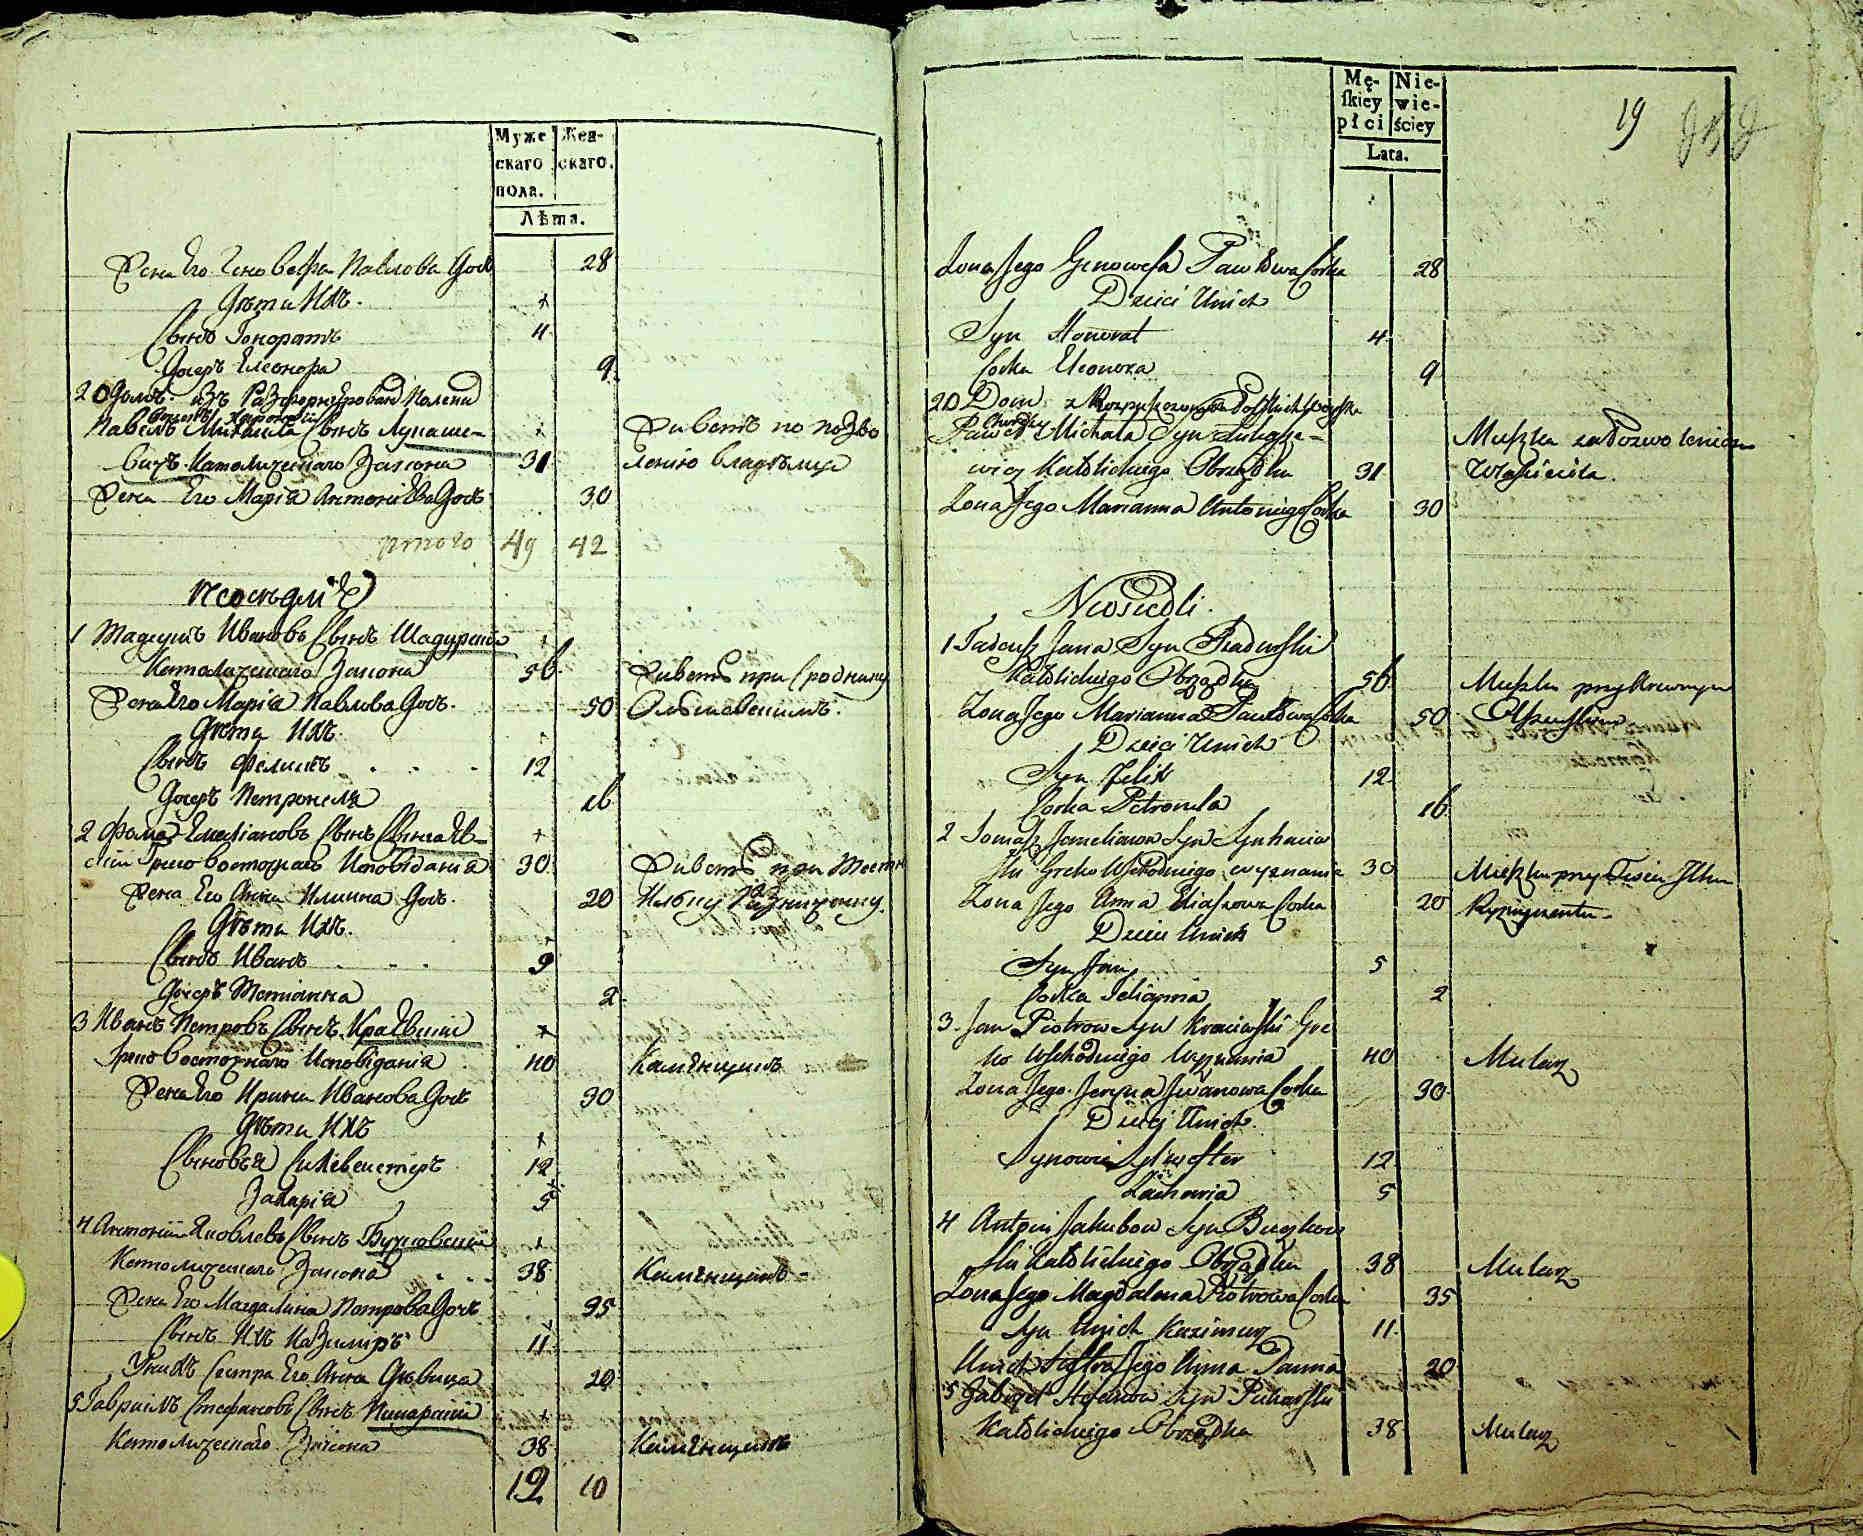 Муже
скаго
пола.
Жен-
скаго.
Лѣта.
Жена Его Геновефа Павлова Дочь 28
Дѣти Ихъ.
Сынъ Гоноратъ 4
Дочерь Елеонора 9
20 Домъ. изъ Разформирован Полски
Павелъ Михаила Сынъ Лукаше-
вичъ. Католическаго Закона 31
Живетъ по позво
лению владѣлца
Жена Его Марія Антоніева Дочь 30
итого 49 42
Неосѣдліе
1 Тадеушъ Ивановъ Сынъ Шадурскій
Католическаго Закона 56
Живетъ при Сроднику
Жена Его Марія Павлова Дочь. 50
Ольшевскимъ.
Дѣти Ихъ.
Сынъ Феликсъ 12
Дочерь Петронеля 16
2 Фома Емеліановъ Сынъ
скій Греко Восточнаго Исповѣданія 30
Живетъ при Тестю
Жена Его Анна Илиина Дочь. 20
Ильну
Дѣти Ихъ.
Сынъ Иванъ 9
Дочерь Тетіянна 2
3 Иванъ Петровъ Сынъ Краевскій
Греко Восточнаго Исповѣданія 40
Каменщикъ
Жена Его Ирина Иванова Дочь 30
Дѣти Ихъ
Сыновья Сильвестеръ 12
Захарія 5
4 Антоній Яковлевъ Сынъ Бучковскій
Католическаго Закона 38
Каменщикъ -
Жена Его Магдалина Петрова Дочь 35
Сынъ Ихъ Казимиръ 11
Унихъ Сестра Его Анна Дѣвица 20
5 Гавриилъ Стефановъ Сынъ Пекарскій
Католическаго Закона 38
Каменщикъ
12 10
Mę-
ſkiey
płci
Nie-
wie-
ściey
Lata.
19
Zona Jego Genowefa Pawłowa Corka 28
Dzieci Unich
Syn Honorat 4
Corka Eleonora 9
20 Dom z Rozpuszczonych Polskich Woyska
Paweł Michała Syn Łukasze-
wicz Katolickiego Obrządku 31
Mieszka za Pozwoleniem
Właściciela.
Zona Jego Marianna Antoniego Corka 30
Nieosiedli.
1 Tadeusz Jana Syn Szadurski
Katolickiego Obrządku 56
Mieszka przy Krewnym
Zona Jego Marianna Pawłowa Corka 50
Olszewskim
Dzieci Unich
Syn Felix 12
Corka Petronela 16
2 Tomasz Jemelianow Syn
ski Greko Wschodniego wyznania 30
Mieszka przy Teściu Ilku
Zona Jego Anna Eliaszowa Corka 20
Dzieci Unich
Syn Jan 5
Corka Tetianna 2
3. Jan Piotrow Syn Kraiewski Gre
ko Wschodniego Wyznania 40
Mularz
Zona Jego Jeryna Jwanowa Corka 30
Dzieci Unich.
Synowie Sylwester 12
Zacharia 5
4 Antoni Jakubow Syn Buczkow
ski Katolickiego Obrządku 38
Mularz
Zona Jego Magdalena Piotrowa Corka 35
Syn Unich Kazimierz 11
Unich Siostra Jego Anna Panna 20
5 Gabryel Stefanow Syn Pekarski
Katolickiego Obrządku 38
Mularz